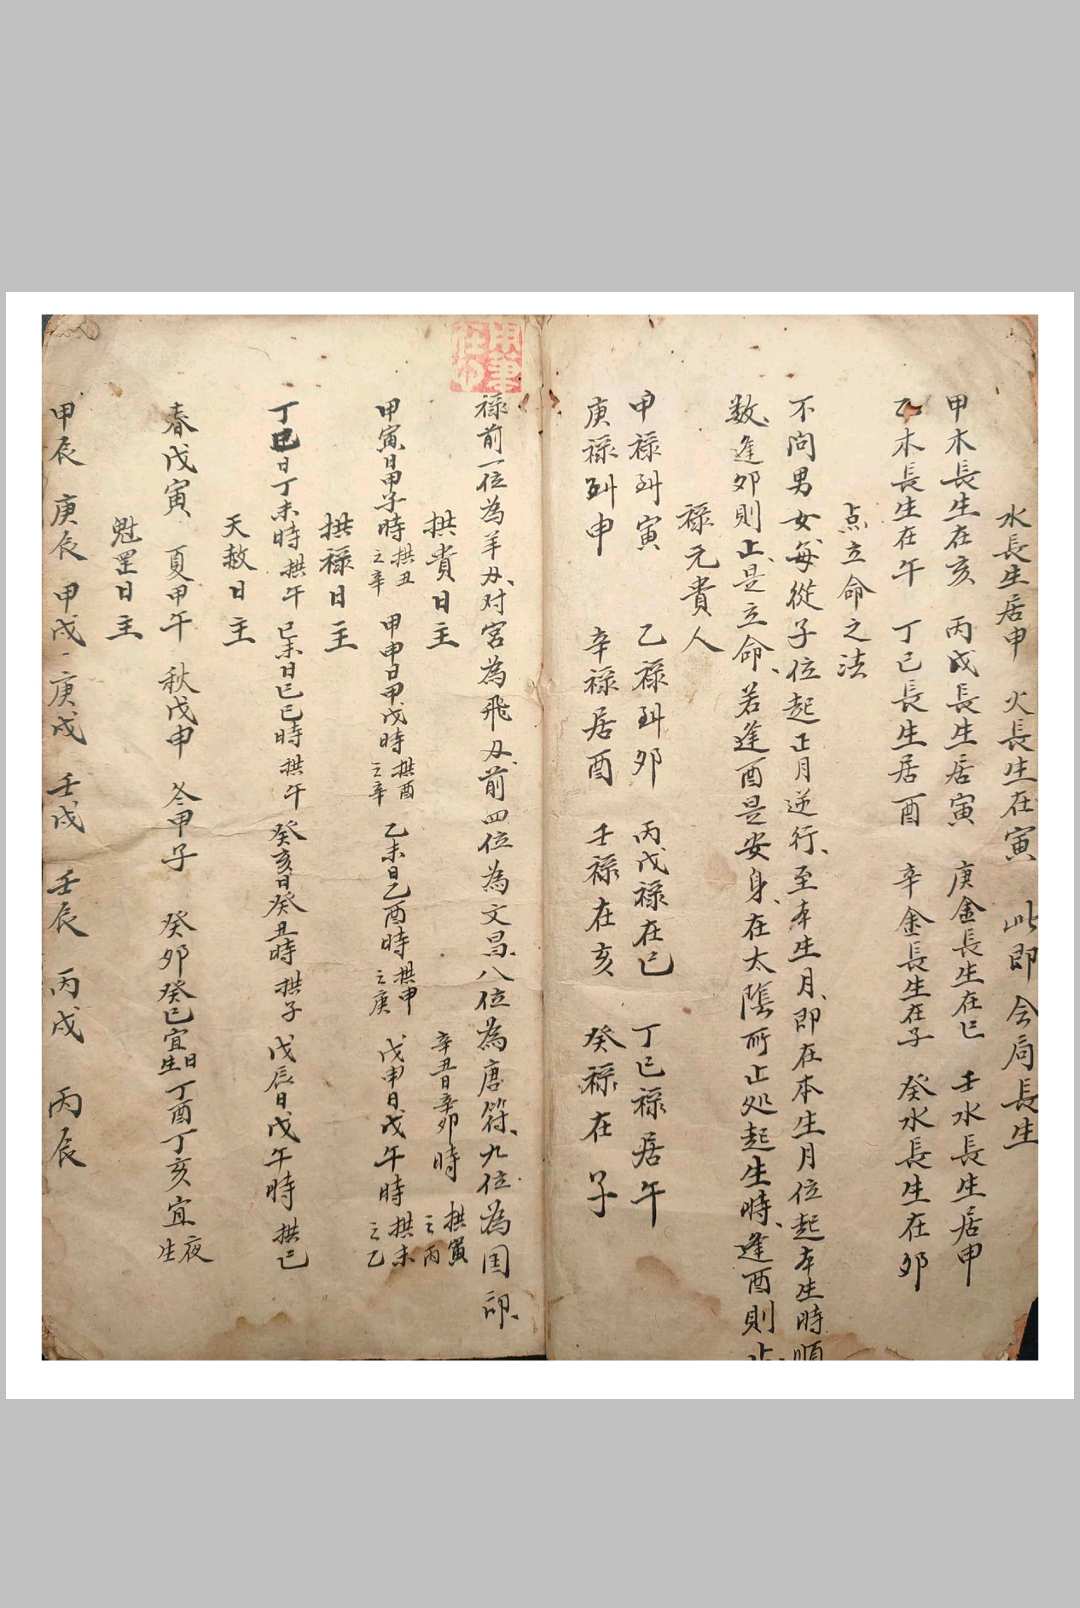 水長生居申　火長生在寅　此即会局長生
甲木長生在亥　丙戊長生居寅　庚金長生在巳　壬水長生居申
乙木長生在午　丁己長生居酉　辛金長生在子　癸水長生在卯
点立命之法
不问男女每從子位起正月逆行、至本生月、即在本生月位起本生時順
数、逢卯則止、是立命、若逢酉是安身、在太陰所止处起生時、逢酉則止
禄元貴人
甲禄到寅　乙禄到卯　丙戊禄在巳　丁己禄居午
庚禄到申　辛禄居酉　壬禄在亥　癸禄在子
禄前一位為羊刃、对宫為飛刃、前四位為文昌、八位為唐符、九位為国印、
拱貴日主　辛丑日辛卯時　拱寅之丙
甲寅日甲子時拱丑之辛　甲申日甲戌時拱酉之辛　乙未日乙酉時拱申之庚　戊申日戊午時拱未之乙
拱禄日主
丁巳日丁未時拱午　己未日己巳時拱午　癸亥日癸丑時拱子　戊辰日戊午時拱巳
天赦日主
春戊寅　夏甲午　秋戊申　冬甲子　癸卯癸巳宜日生　丁酉丁亥宜夜生
魁罡日主
甲辰　庚辰　甲戌　庚戌　壬戌　壬辰　丙戌　丙辰